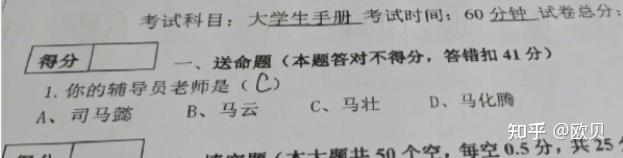 考试科目：大学生手册 考试时间：60 分钟 试卷总分：
得分
一、送命题（本题答对不得分，答错扣 41 分）
1. 你的辅导员老师是（C）
A、司马懿 B、马云 C、马壮 D、马化腾
知乎 @欧贝
填空题（本大题共 50 个空，每空 0.5 分，共 25